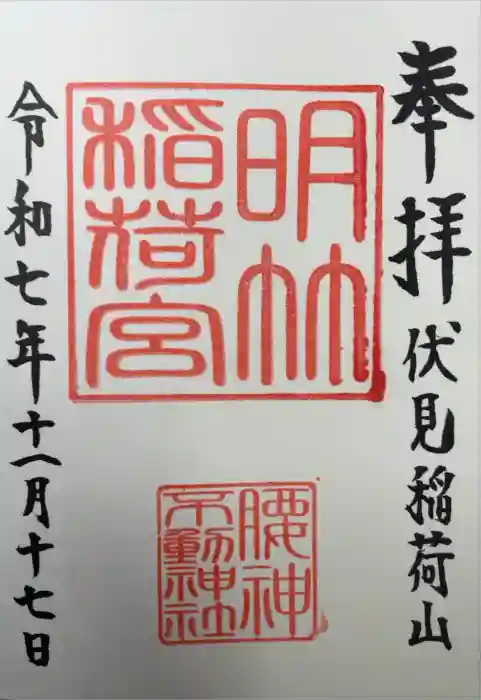 奉拝 伏見稲荷山
明竹
稲荷宮
腰神
不動神社
令和七年十一月十七日